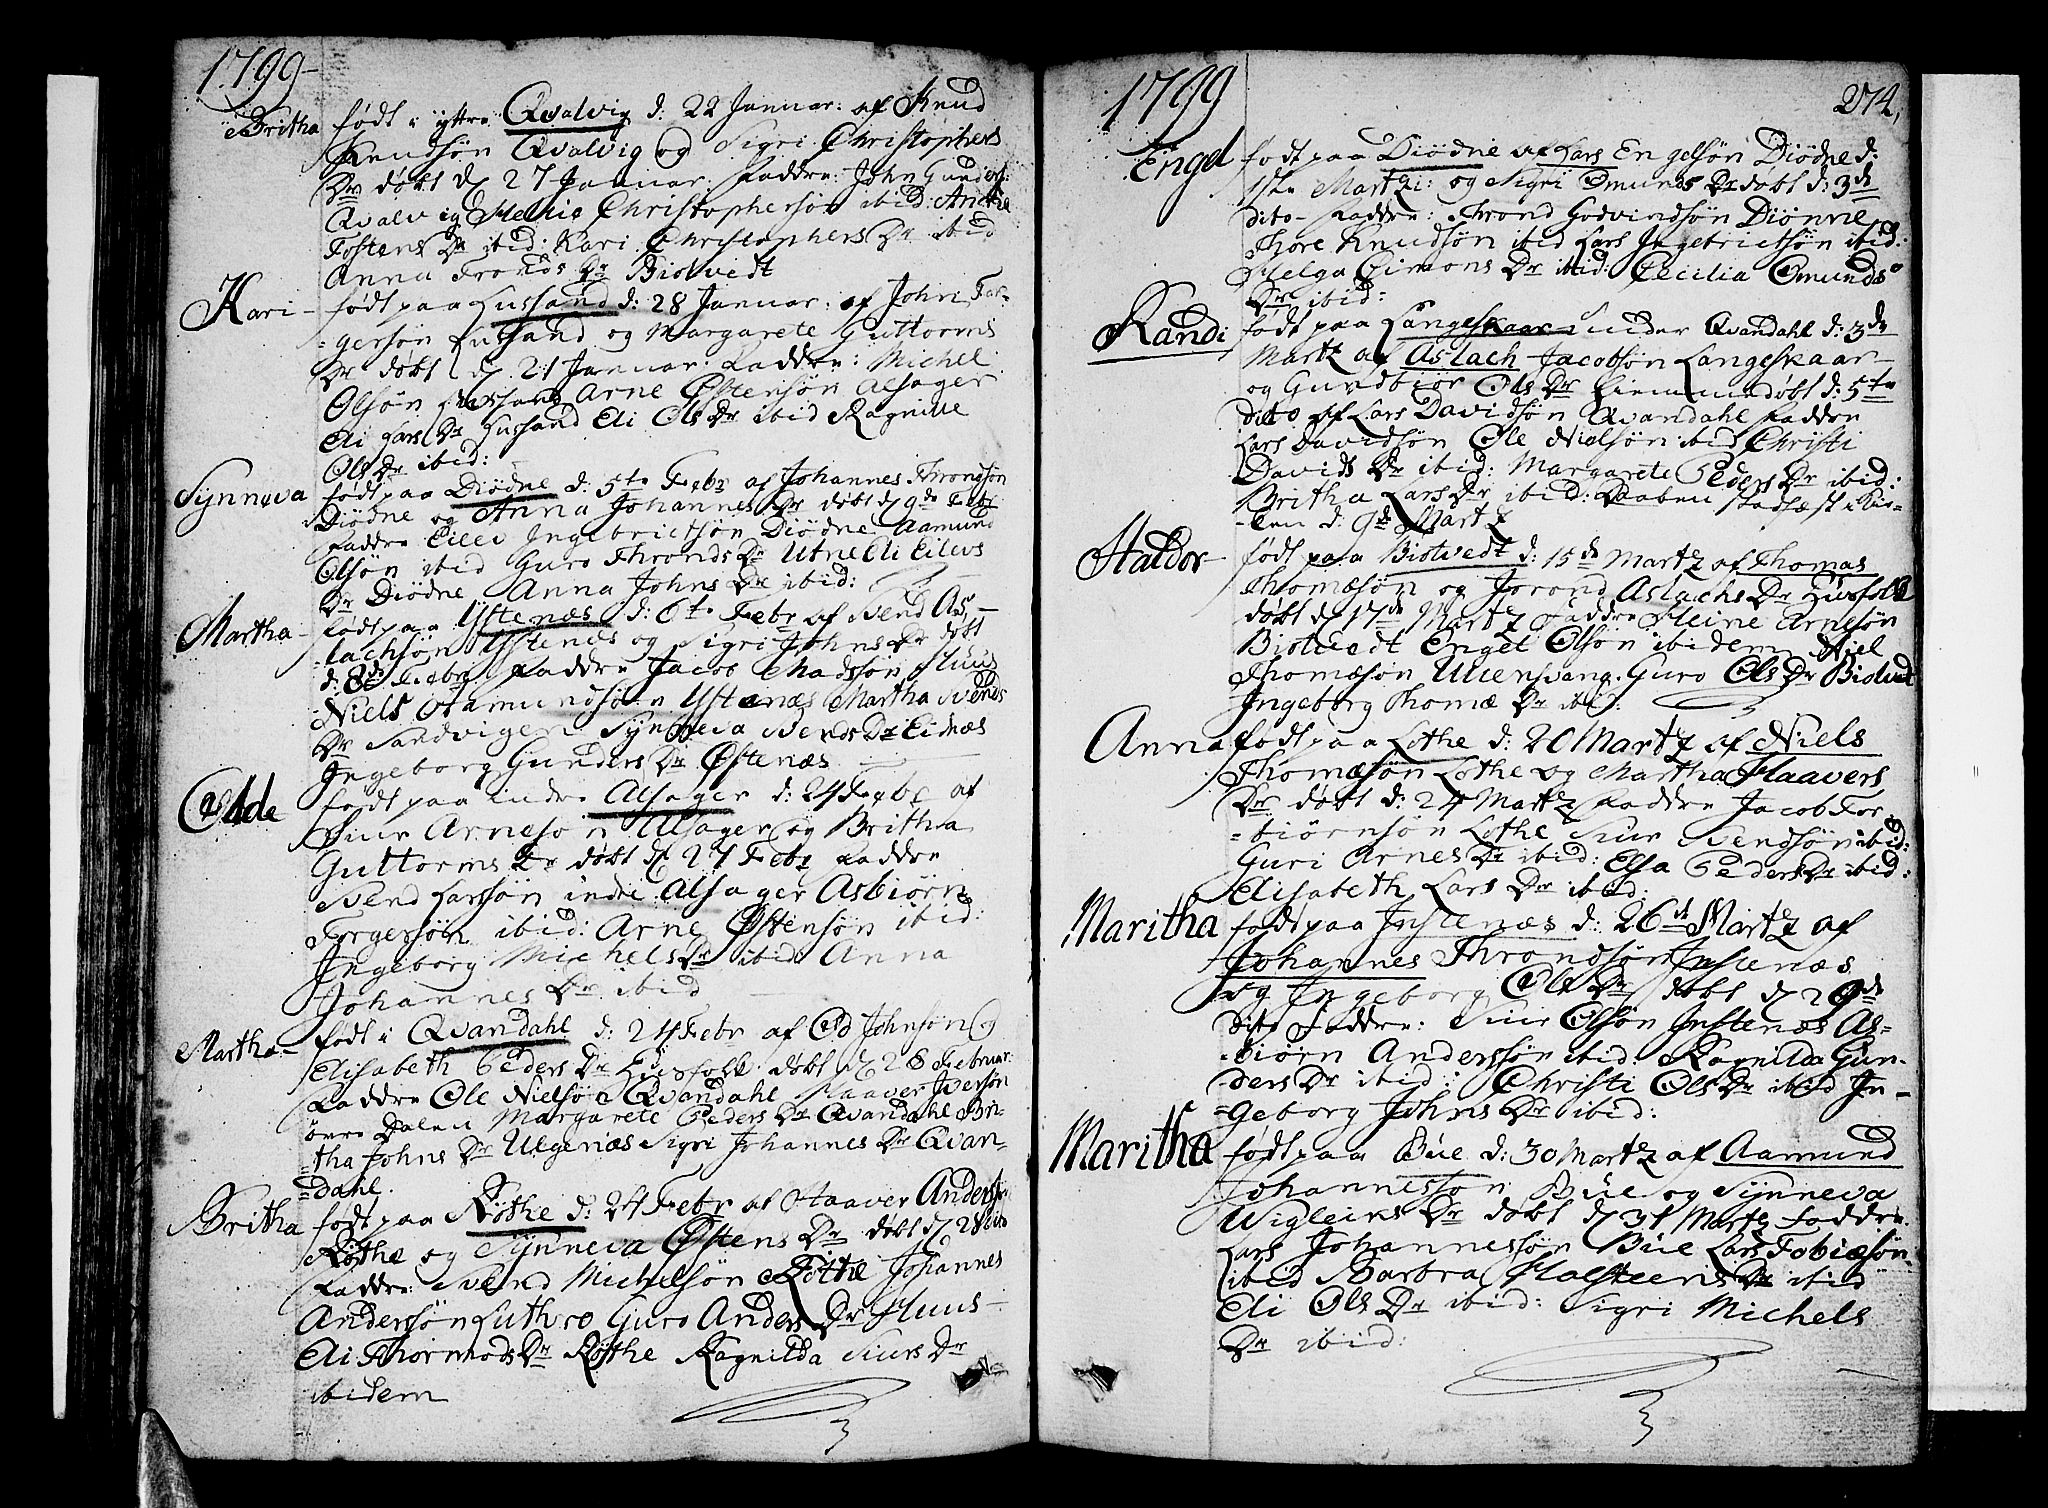 1799
Britha født i yttre Qvalvig d: 22 Januar: af Knud
Knudsøn Qvalvig og Sigri Christophers
Dr døbt d 27 Januar. Faddre: John Gunders:
Qvalvig Helje Christophersøn ibid: Anna
Tostens Dr ibid: Kari Christophers Dr ibid
Anna Tronds Dr Biotvedt
Kari- født paa Hussand d: 28 Januar: af John Tor-
=gersøn Hussand og Margarete Guttorms
Dr døbt d 21 Januar: Faddre: Michel
Olsøn Hussand Arne Østensøn Alsager
Eli Lars Dr Hussand Eli Ols Dr ibid Ragnilde
Ols Dr ibid:
Synneva født paa Diødne d: 5te Febr af Johannes Throndsøn
Diødne og Anna Johannes Dr døbt d 9de Febr
Faddre Eilev Ingebrictsøn Diødne Aamund
Olsøn ibid Guro Thronds Dr Utne Eli Eilevs
Dr Diødne Anna Johns Dr ibid:
Martha- født paa Ystenæs d: 6te Febr af Svend As-
=lachsøn Ystenæs og Sigri Johns Dr døbt
d: 8de Febr Faddre Jacob Madssøn Huus
Niels Aamundsøn Ystenæs Martha Svends
Dr Sandvigen Synneva Svends Dr Eidnæs
Ingeborg Gunders Dr Østenæs
Odde født paa indre Alsager d: 24 Febr af
Siur Arnesøn Alsager og Britha
Guttorms Dr døbt d 27 Febr Faddre
Svend Larssøn indre Alsager Asbiørn
Torgersøn ibid: Arne Østensøn ibid:
Ingeborg Michels Dr ibid: Anna
Johannes Dr ibid
Martha- født i Qvandahl d: 24 Febr af Od Johnsøn og
Elisabeth Peders Dr Huusfolk døbt d 28 Februar:
Faddre Ole Nielsøn Qvandahl Haaver Iversøn
øvre Dalen Margarete Peders Dr Qvandahl Bri-
=tha Johns Dr Ulgenæs Sigri Johannes Dr Qvan-
=dahl.
Britha født paa Røthe d: 24 Febr af Haaver Anders:
Røthe og Synneva Østens Dr døbt d 28
Faddre: Svend Michelsøn Røthe Johannes
Andersøn Luthro Guro Anders Dr Huus-
Eli Thormods Dr Røthe Ragnilda Siurs Dr
ibidem
1799
274,
Engel født paa Diødne af Lars Engelsøn Diødne d:
1ste Martzi: og Sigri Omunds Dr døbt d: 3de
dito- Faddre: Thrond Godvindsøn Diønne
Thore Knudsøn ibid Lars Ingebrictsøn ibid:
Helga Simons Dr ibid: Cecilia Omunds
Dr ibid:
Randi, født paa Langeskaar under Qvandahl d: 3de
Martz af Aslach Jacobsøn Langeskaar-
og Gundbiør Ols Dr døbt d: 5te
dito af Lars Davidsøn Qvandahl Faddre
Lars Davidsøn Ole Nielsøn ibid Christi
Davids Dr ibid: Margarete Peders Dr ibid:
Britha Lars Dr ibid: Daaben stadfæst i Kir-
-ken d: 9de Martz
Haldor- født paa Biotvedt d: 15de Martz af Thomas
Thomæsøn og Jorond Aslachs Dr Huusfolk
døbt d 17de Martz Faddre Heine Arnesøn
Biotvedt Engel Olsøn ibidem Niel
Thomæsøn Ullensvang. Guro Ols Dr Biotvedt
Ingeborg Thomæ Dr ibid:
Anna født paa Lothe d: 20 Martz af Niels
Thomæsøn Lothe og Martha Haavers
Dr døbt d: 24 Martz Faddre Jacob Tor
=biørnsøn Lothe Siur Svendsøn ibid:
Guri Arnes Dr ibid: Elsa Peders Dr ibid:
Elisabeth Lars Dr ibid:
Maritha født paa Instenæs d: 26de Martz af
Johannes Throndsøn Instenæs
og Ingeborg Ols Dr døbt d 29de
dito Faddre: Siur Olsøn Instenæs As-
-biørn Anderssøn ibid: Ragnilda Gun-
=ders Dr ibid: Christi Ols Dr ibid In-
=geborg Johns Dr ibid:
Maritha født paa Büe d: 30 Martz af Aamund
Johannessøn Büe og Synneva
Wigleiks Dr døbt d 31 Martz Faddre
Lars Johannessøn Büe Lars Tobiæsøn
ibid Barbra Halsteens Dr ibid
Eli Ols Dr ibid: Sigri Michels
Dr ibid: